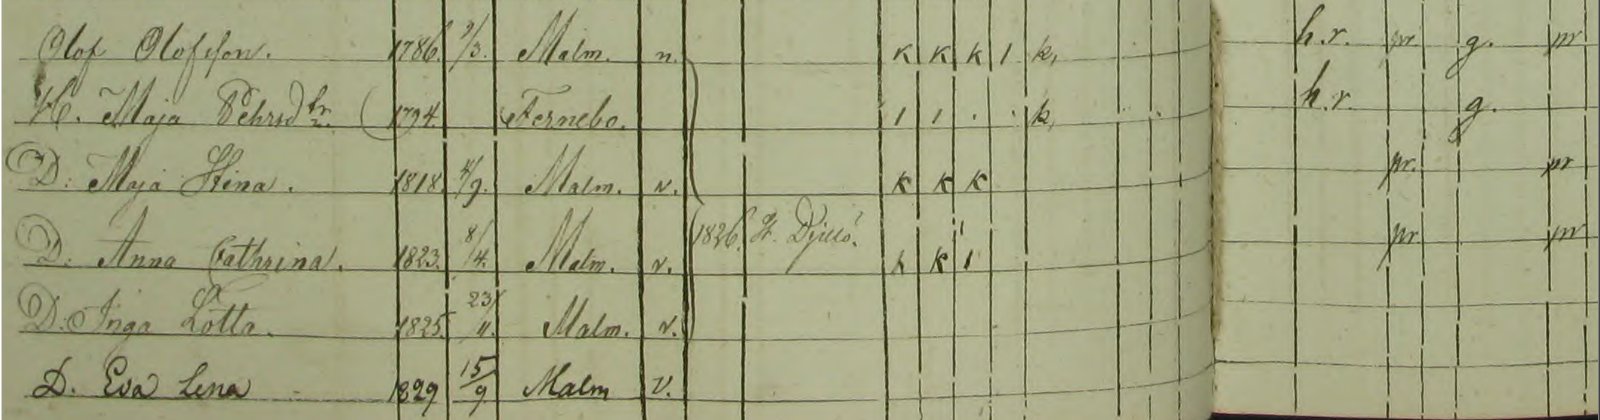 Olof Olofsson. 1786. 9/3. Malm. n. K K K 1 k, h.r. pr g. pr
H. Maja Pehrsdtr 1794. Fernebo. 1 1 . . k, h.r. g.
D: Maja Stina. 1818. /9. Malm. v. K K K pr. pr
D: Anna Cathrina. 1823. 8/4. Malm. v. 1826. fr. K 1 pr pr
D: Inga Lotta. 1825 23/11. Malm. v.
D. Eva Lena 1829 15/9 Malm V.